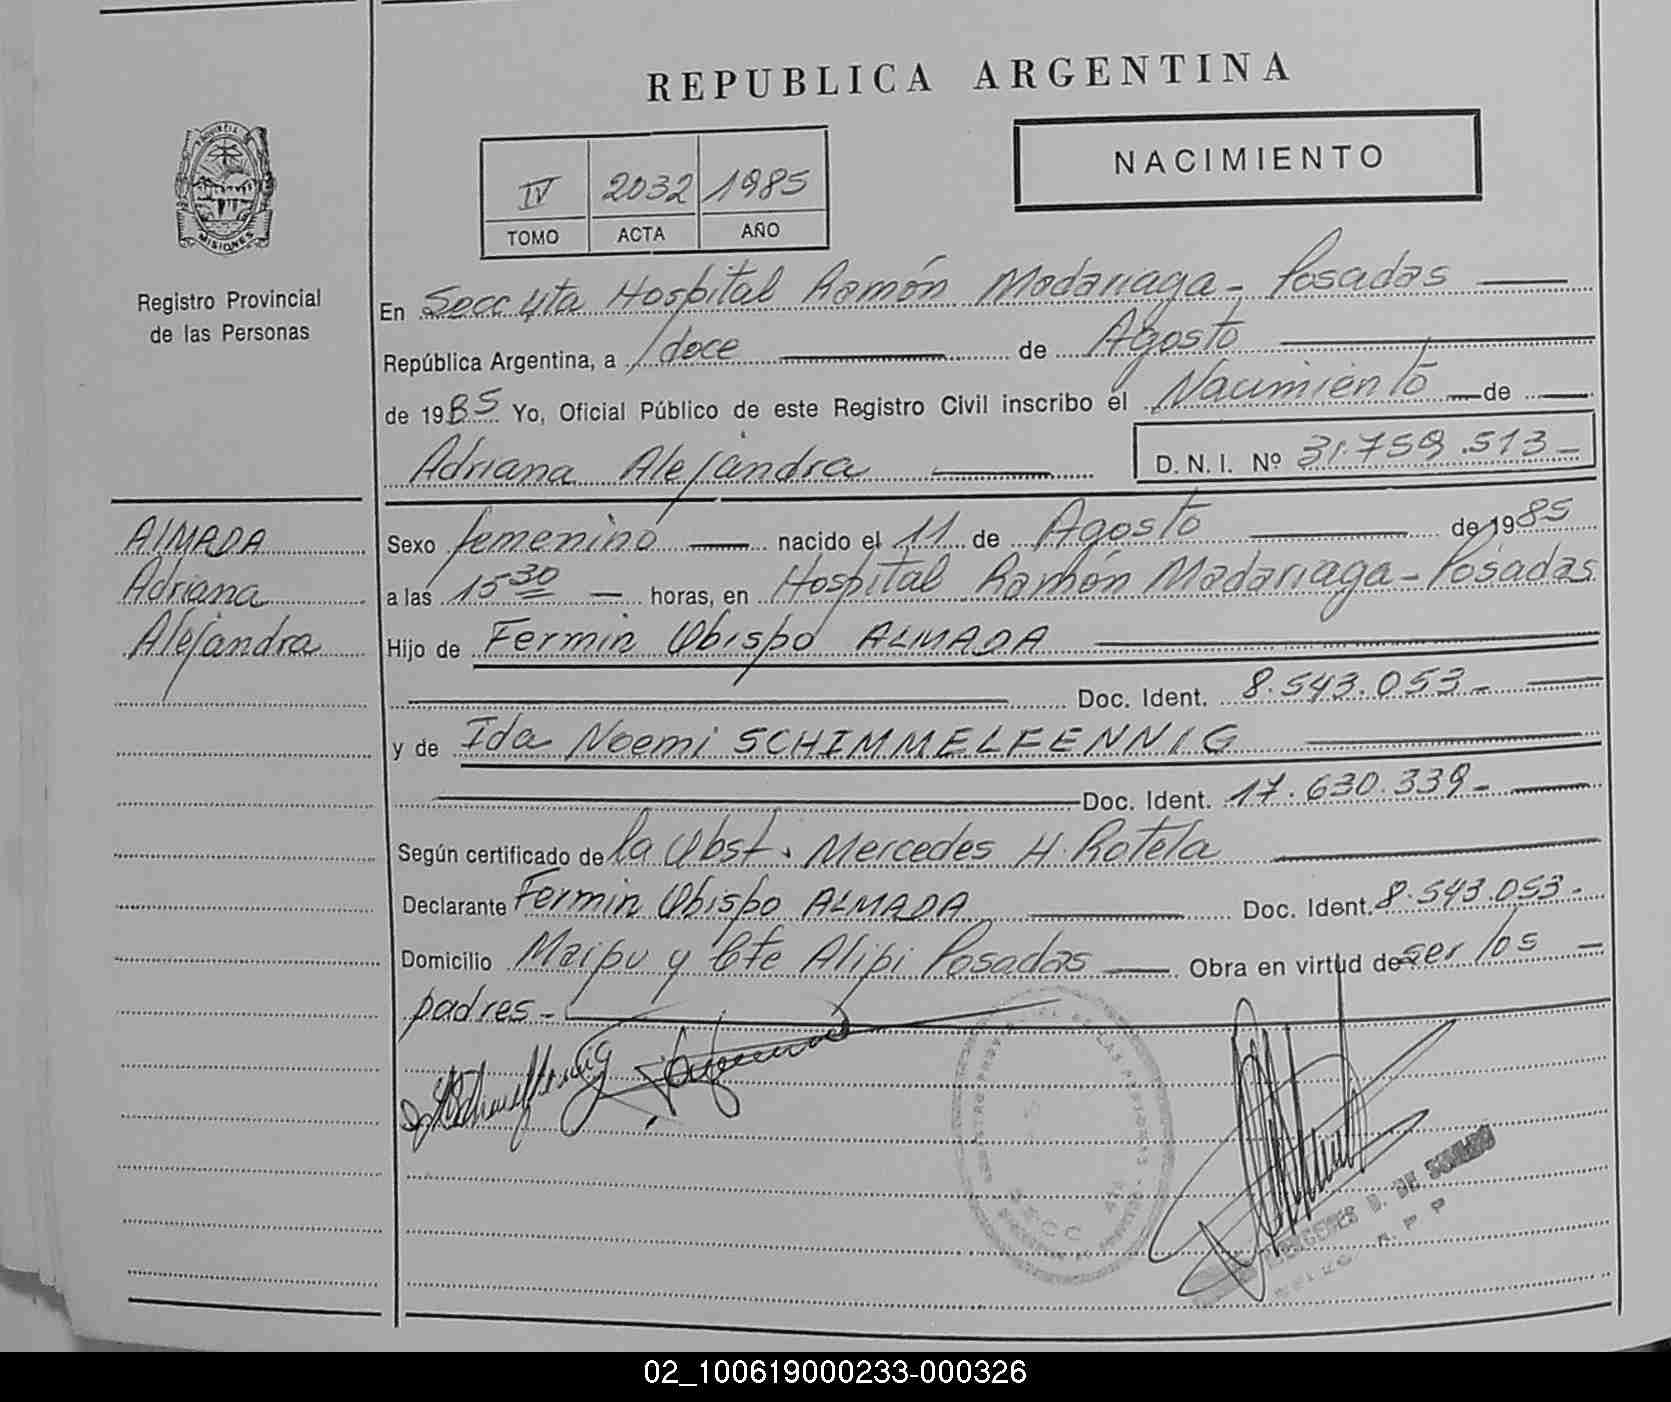 REPUBLICA ARGENTINA
PROVINCIA DE
MISIONES
Registro Provincial
de las Personas
IV 2032 1985
TOMO ACTA AÑO
NACIMIENTO
En Secc 4ta Hospital Ramón Madariaga - Posadas
República Argentina, a doce de Agosto
de 1985 Yo, Oficial Público de este Registro Civil inscribo el Nacimiento de
Adriana Alejandra D. N. I. Nº 31.759.513-
ALMADA
Adriana
Alejandra
Sexo femenino nacido el 11 de Agosto de 1985
a las 15 30 horas, en Hospital Ramón Madariaga - Posadas
Hijo de Fermin Obispo ALMADA
Doc. Ident. 8.543.053-
y de Ida Noemi SCHIMMELFENNIG
Doc. Ident. 17.630.339-
Según certificado de la Obst. Mercedes H. Rotela
Declarante Fermin Obispo ALMADA Doc. Ident. 8.543.053-
Domicilio Maipu y Cte Alipi Posadas Obra en virtud de ser los
padres-
SECC 4TA
DE
02_100619000233-000326